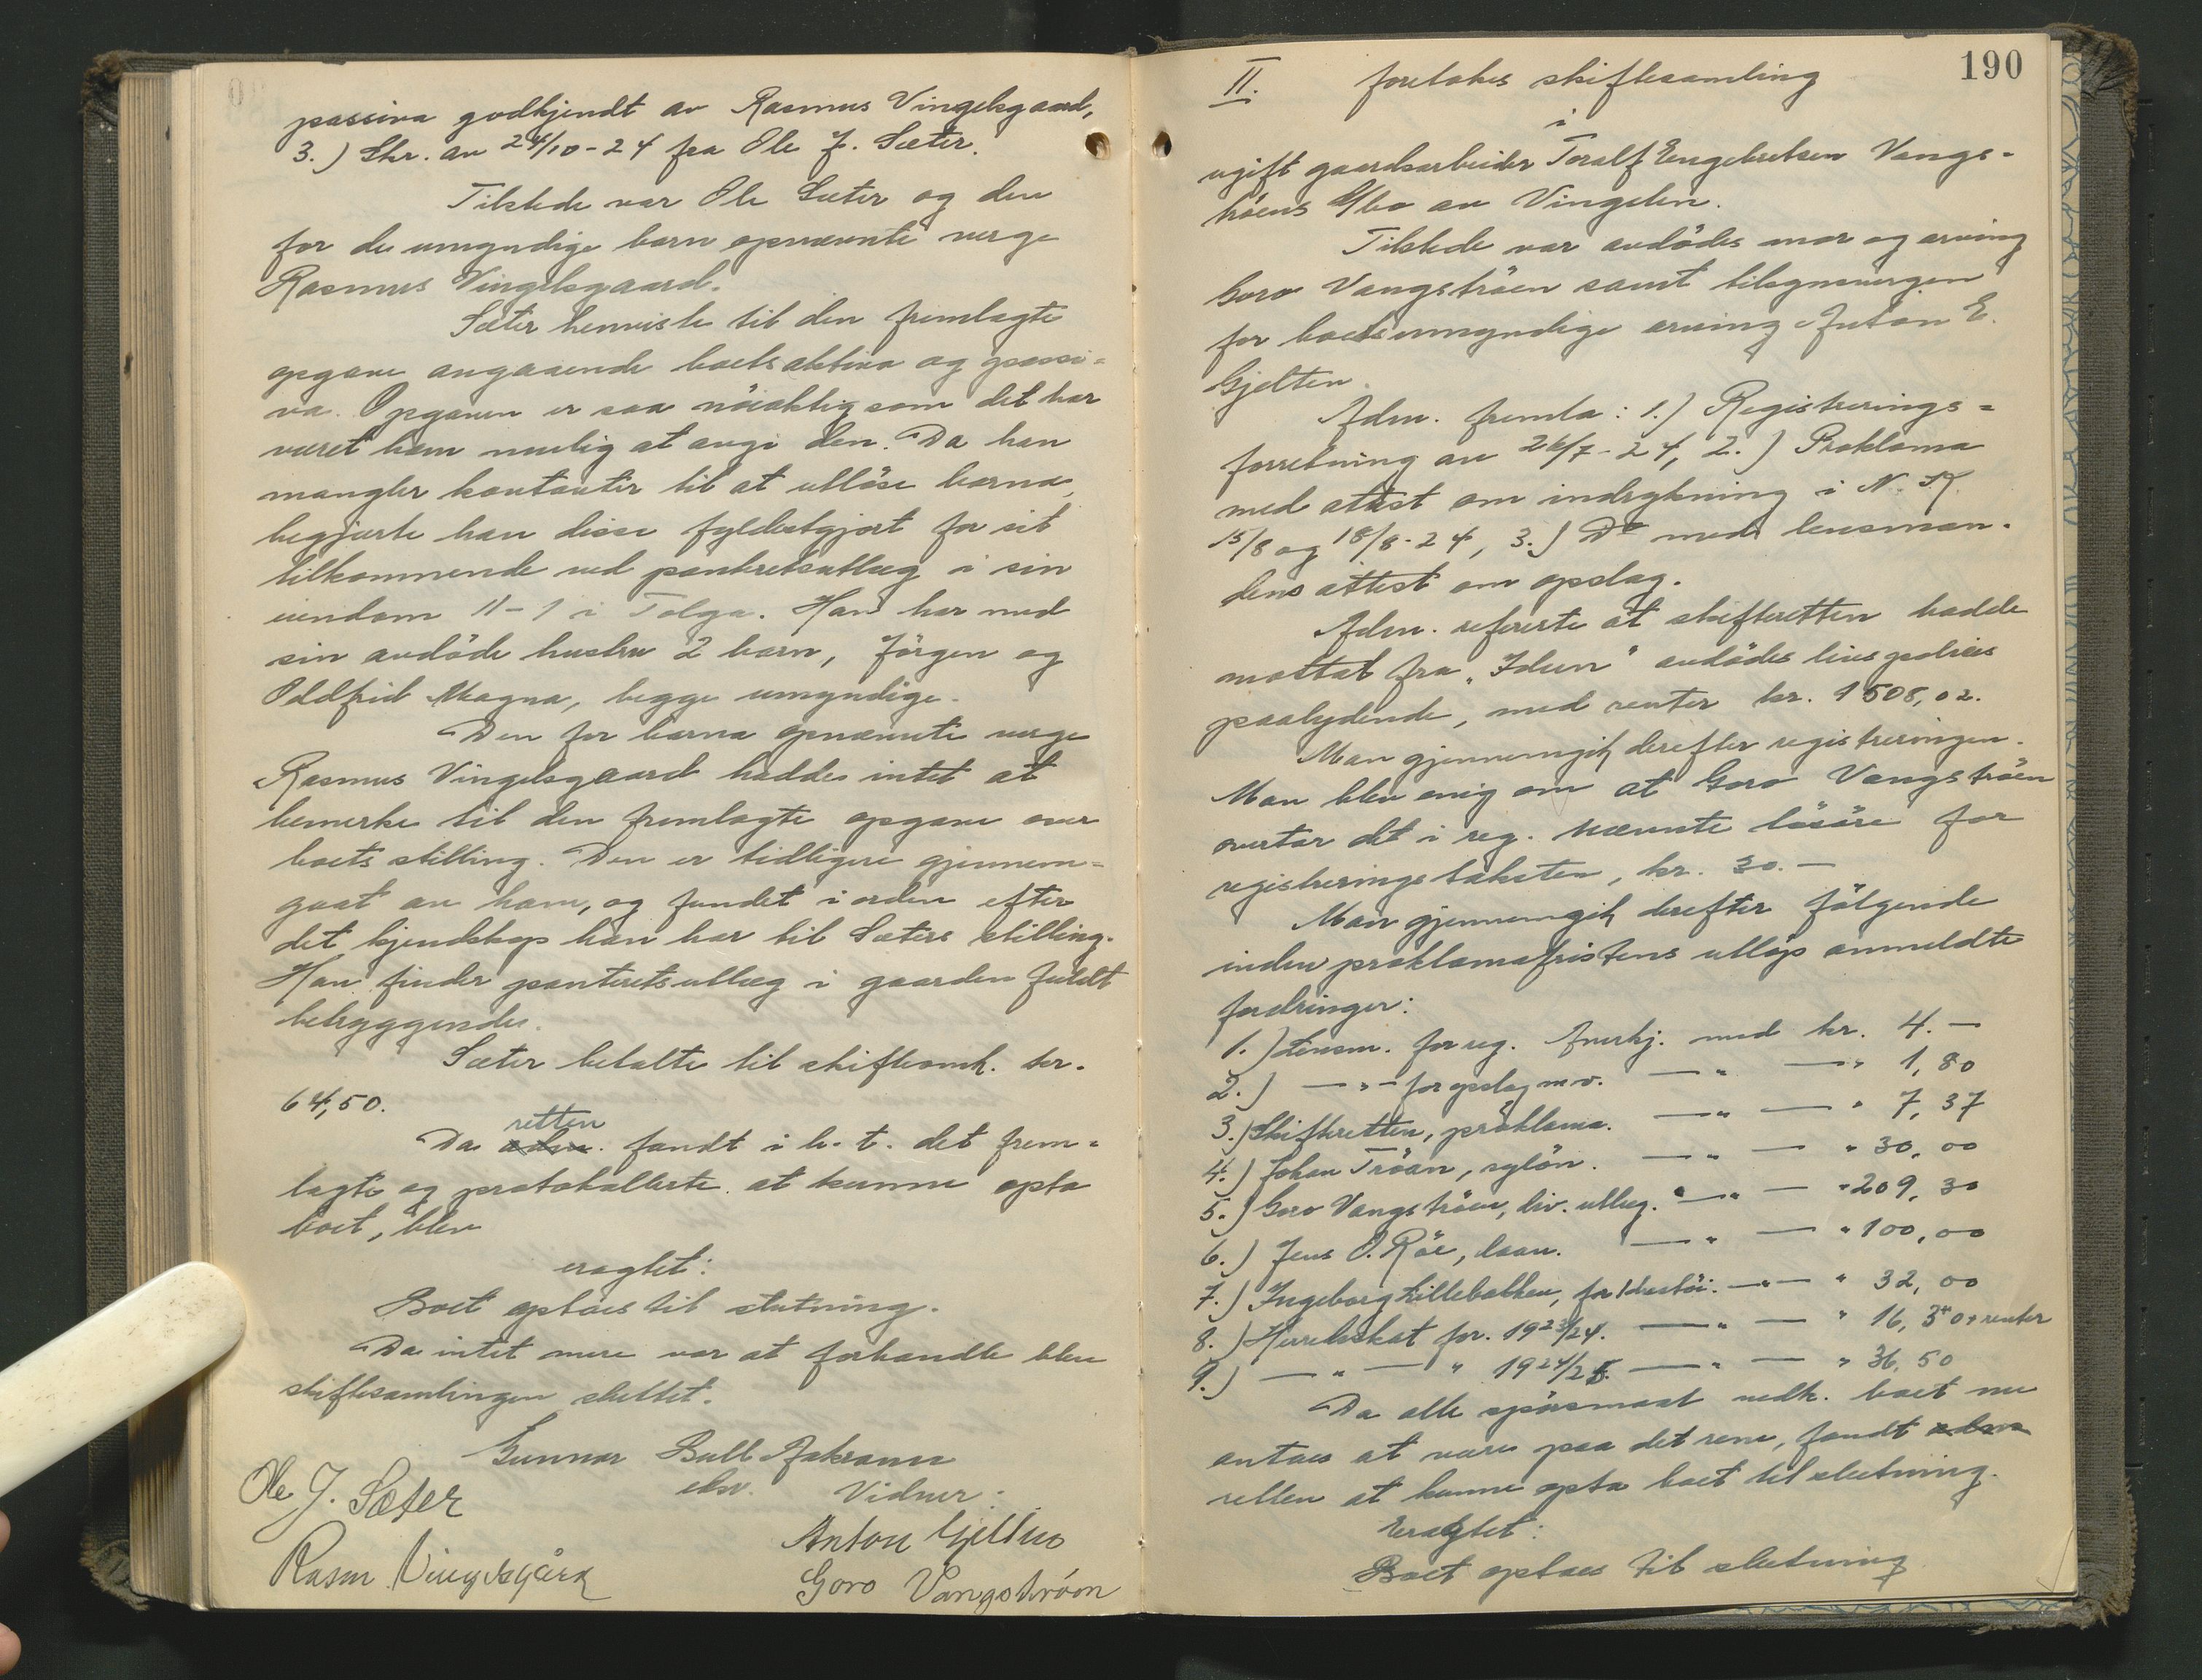 passiva godkjendt av Rasmus Vingelsgaard,
3.) Skr. av 24/10-24 fra Ole J. Sæter.
Tilstede var Ole Sæter og den
for de umyndige barn opnævnte verge
Rasmus Vingelsgaard.
Sæter henviste til den fremlagte
opgave angaaende boets aktiva og passi=
va. Opgaven er saa nöiaktig som det har
været ham mulig at avgi den. Da han
mangler kontanter til at utlöse barna,
begjærte han disse fyldestgjort for sit
tilkommende ved panteretsutlæg i sin
eiendom 11-1 i Tolga. Han har med
sin avdöde hustru 2 barn, Jörgen og
Oddfrid Magna, begge umyndige.
Den for barna opnævnte verge
Rasmus Vingelsgaard hadde intet at
bemerke til den fremlagte opgave over
boets stilling. Den er tidligere gjennem=
gaat av ham, og fundet i orden efter
det kjendskap han har til Sæters stilling.
Han finder panteretsutlæg i gaarden fuldt
betryggende.
Sæter betalte til skifteomk. kr.
64,50.
retten
Da adm. fandt i h. t. det frem=
lagte og protokollerte at kunne opta
boet, blev
eragtet:
Boet optaes til slutning.
Da intet mere var at forhandle blev
skiftesamlingen sluttet.
Gunnar Bull Aakrann
ekv. Vidner:
Ole J. Sæter
Anton Gjelten
Rasm Vingelsgård
Goro Vangströen
190
II. foretokes skiftesamling
i
ugift gaardsarbeider Toralf Engebretsen Vangs=
tröens Dbo av Vingelen.
Tilstede var avdödes mor og arving
Goro Vangströen samt tilsynsvergen
for boets umyndige arving Anton E.
Gjelten.
Adm. fremla: 1.) Registrerings=
forretning av 26/7-24, 2.) Proklama
med attest om indrykning i N. K.
15/8 og 18/8-24, 3.) Do med lensman=
dens attest om opslag.
Adm. refererte at skifteretten hadde
mottat fra "Idun" avdödes livspolices
paalydende, med renter kr. 1508,02.
Man gjennemgik derefter registreringen.
Man blev enig om at Goro Vangströen
overtar det i reg. nævnte lösöre for
registreringstaksten, kr. 30.—
Man gjennemgik derefter fölgende
inden proklamafristens utlöp anmeldte
fordringer:
1.) Lensm. for reg. Anerkj. med kr. 4.—
2.) —"— for opslag m. v. —"— —" 1,80
3.) Skifteretten, proklama. —"— —" 7,37
4.) Johan Tröan, sylön. —"— —" 30,00
5.) Goro Vangströen, div. utlæg. —"— —" 209,30
6.) Jens O. Röe, laan. —"— —" 100,00
7.) Ingeborg Lillebakken, for 1 —"— " 32,00
8.) Herredsskat for 1923/24. —"— —" 16,30 + renter
9.) —"— " 1924/25. —"— —" 36,50
Da alle spörsmaal vedk. boet nu
antaes at være paa det rene, fandt adm.
retten at kunne opta boet til slutning.
Eragtet:
Boet optaes til slutning